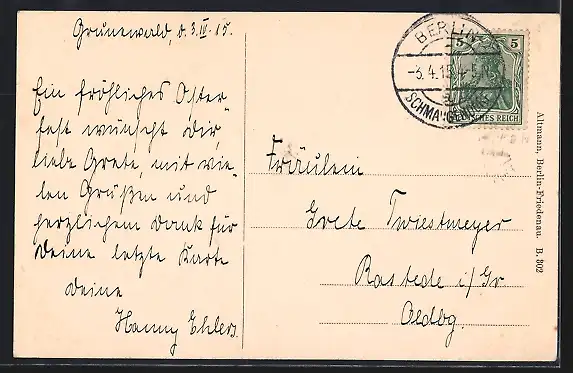 Grunewald, d. 3.IV. 15.
Ein fröhliches Oster-
fest wünscht dir,
liebe Grete, mit vie-
len Grüßen und
herzlichem Dank für
Deine letzte Karte
Deine
Hanny Ehlers.
BERLIN
-3.4.15.
SCHMARGENDORF
5 5
DEUTSCHES REICH
Fräulein
Grete Twiestmeyer
Rastede i/Gr.
Oldbg.
Altmann, Berlin-Friedenau. B. 302